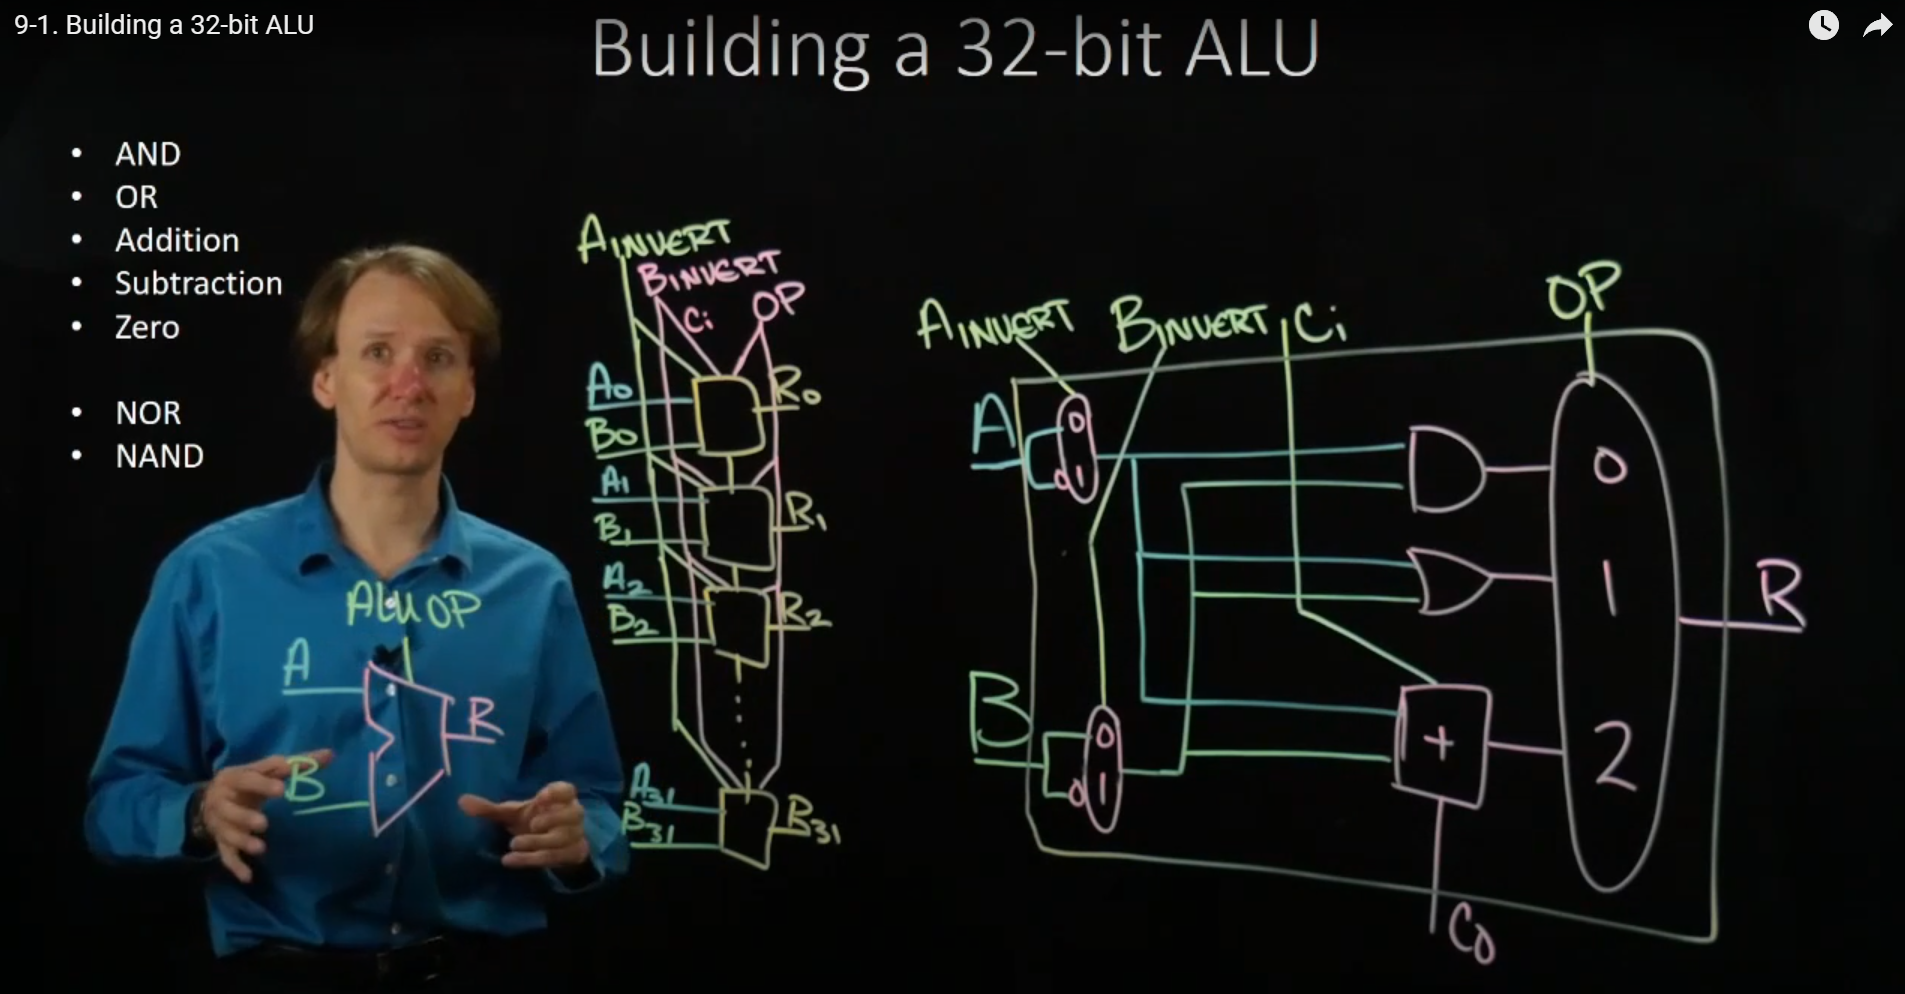 9-1. Building a 32-bit ALU
Building a 32-bit ALU
• AND
• OR
• Addition
• Subtraction
• Zero
• NOR
• NAND
ALU OP
A
B
R
AINVERT
BINVERT
Ci
OP
A0
B0
R0
A1
B1
R1
A2
B2
R2
A31
B31
B31
AINVERT
BINVERT
Ci
OP
A
0
1
B
0
1
+
0
1
2
R
Co